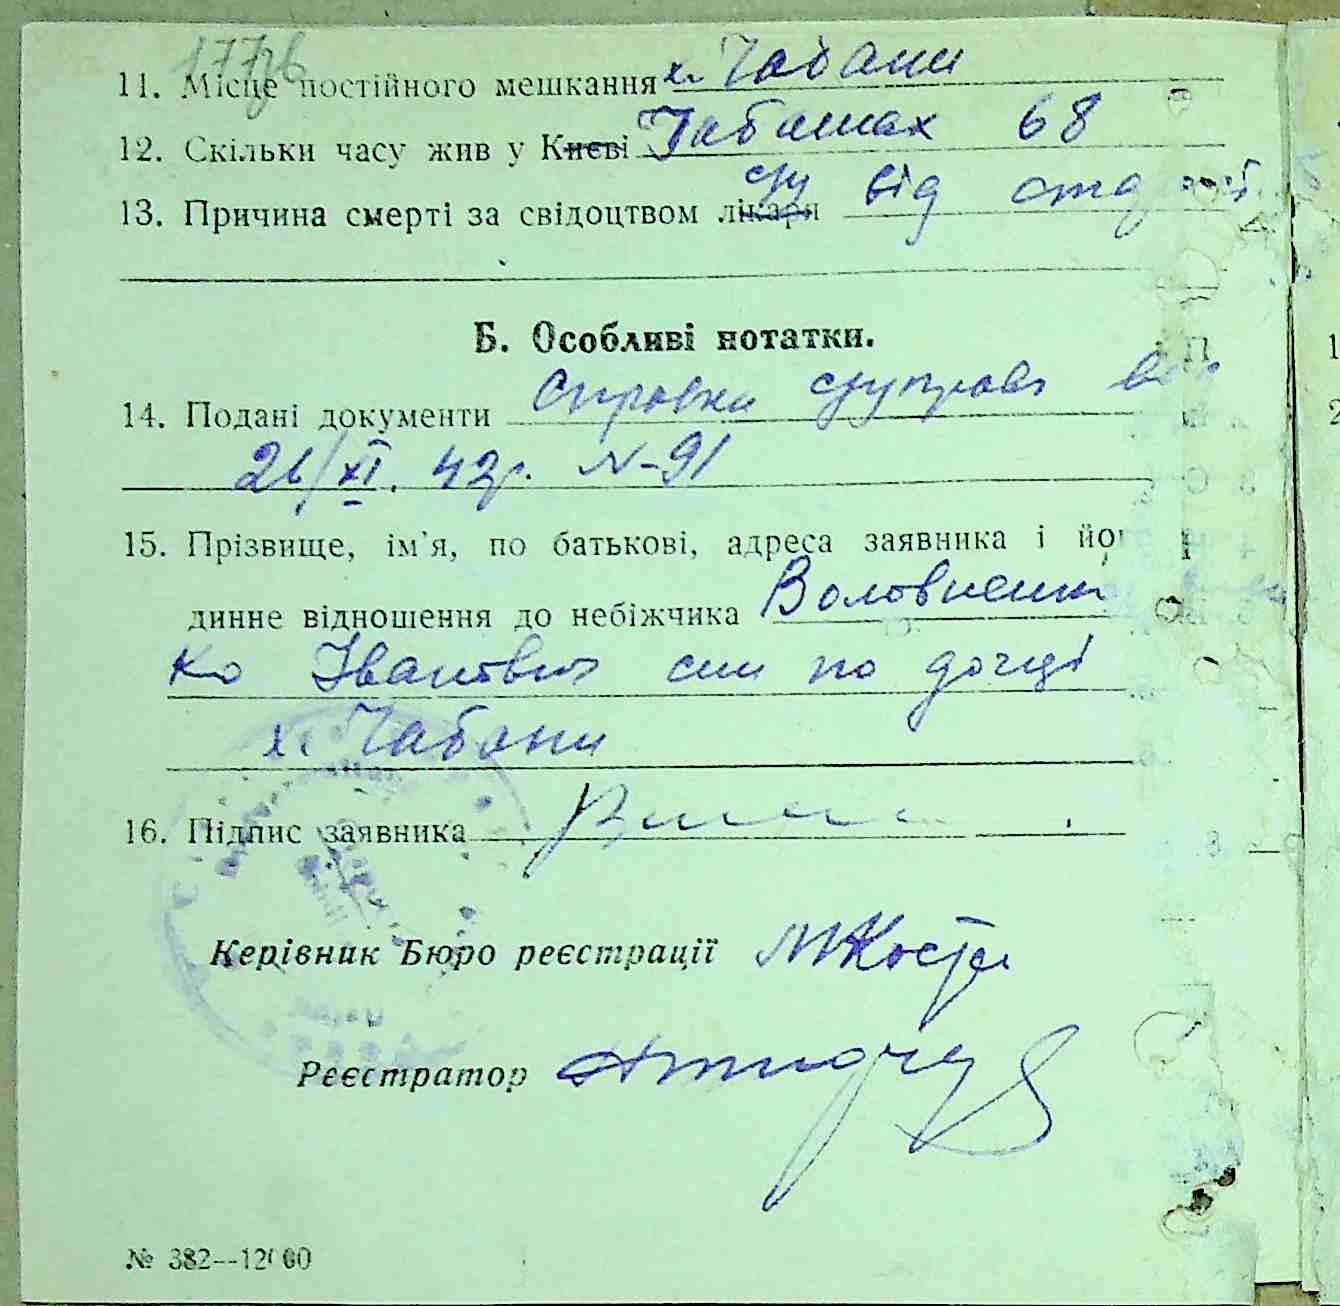 177зв
11. Місце постійного мешкання х. Чабани
12. Скільки часу жив у Києві Чабанах 68
13. Причина смерті за свідоцтвом лікаря від
Б. Особливі нотатки.
14. Подані документи Справка сільуправи від
26/XI. 42р. N-91
15. Прізвище, ім'я, по батькові, адреса заявника і йог
динне відношення до небіжчика Воловненк
ко Іван син по дочці
х. Чабани
16. Підпис заявника
Керівник Бюро реєстрації МКостю
Реєстратор
№ 382--12000